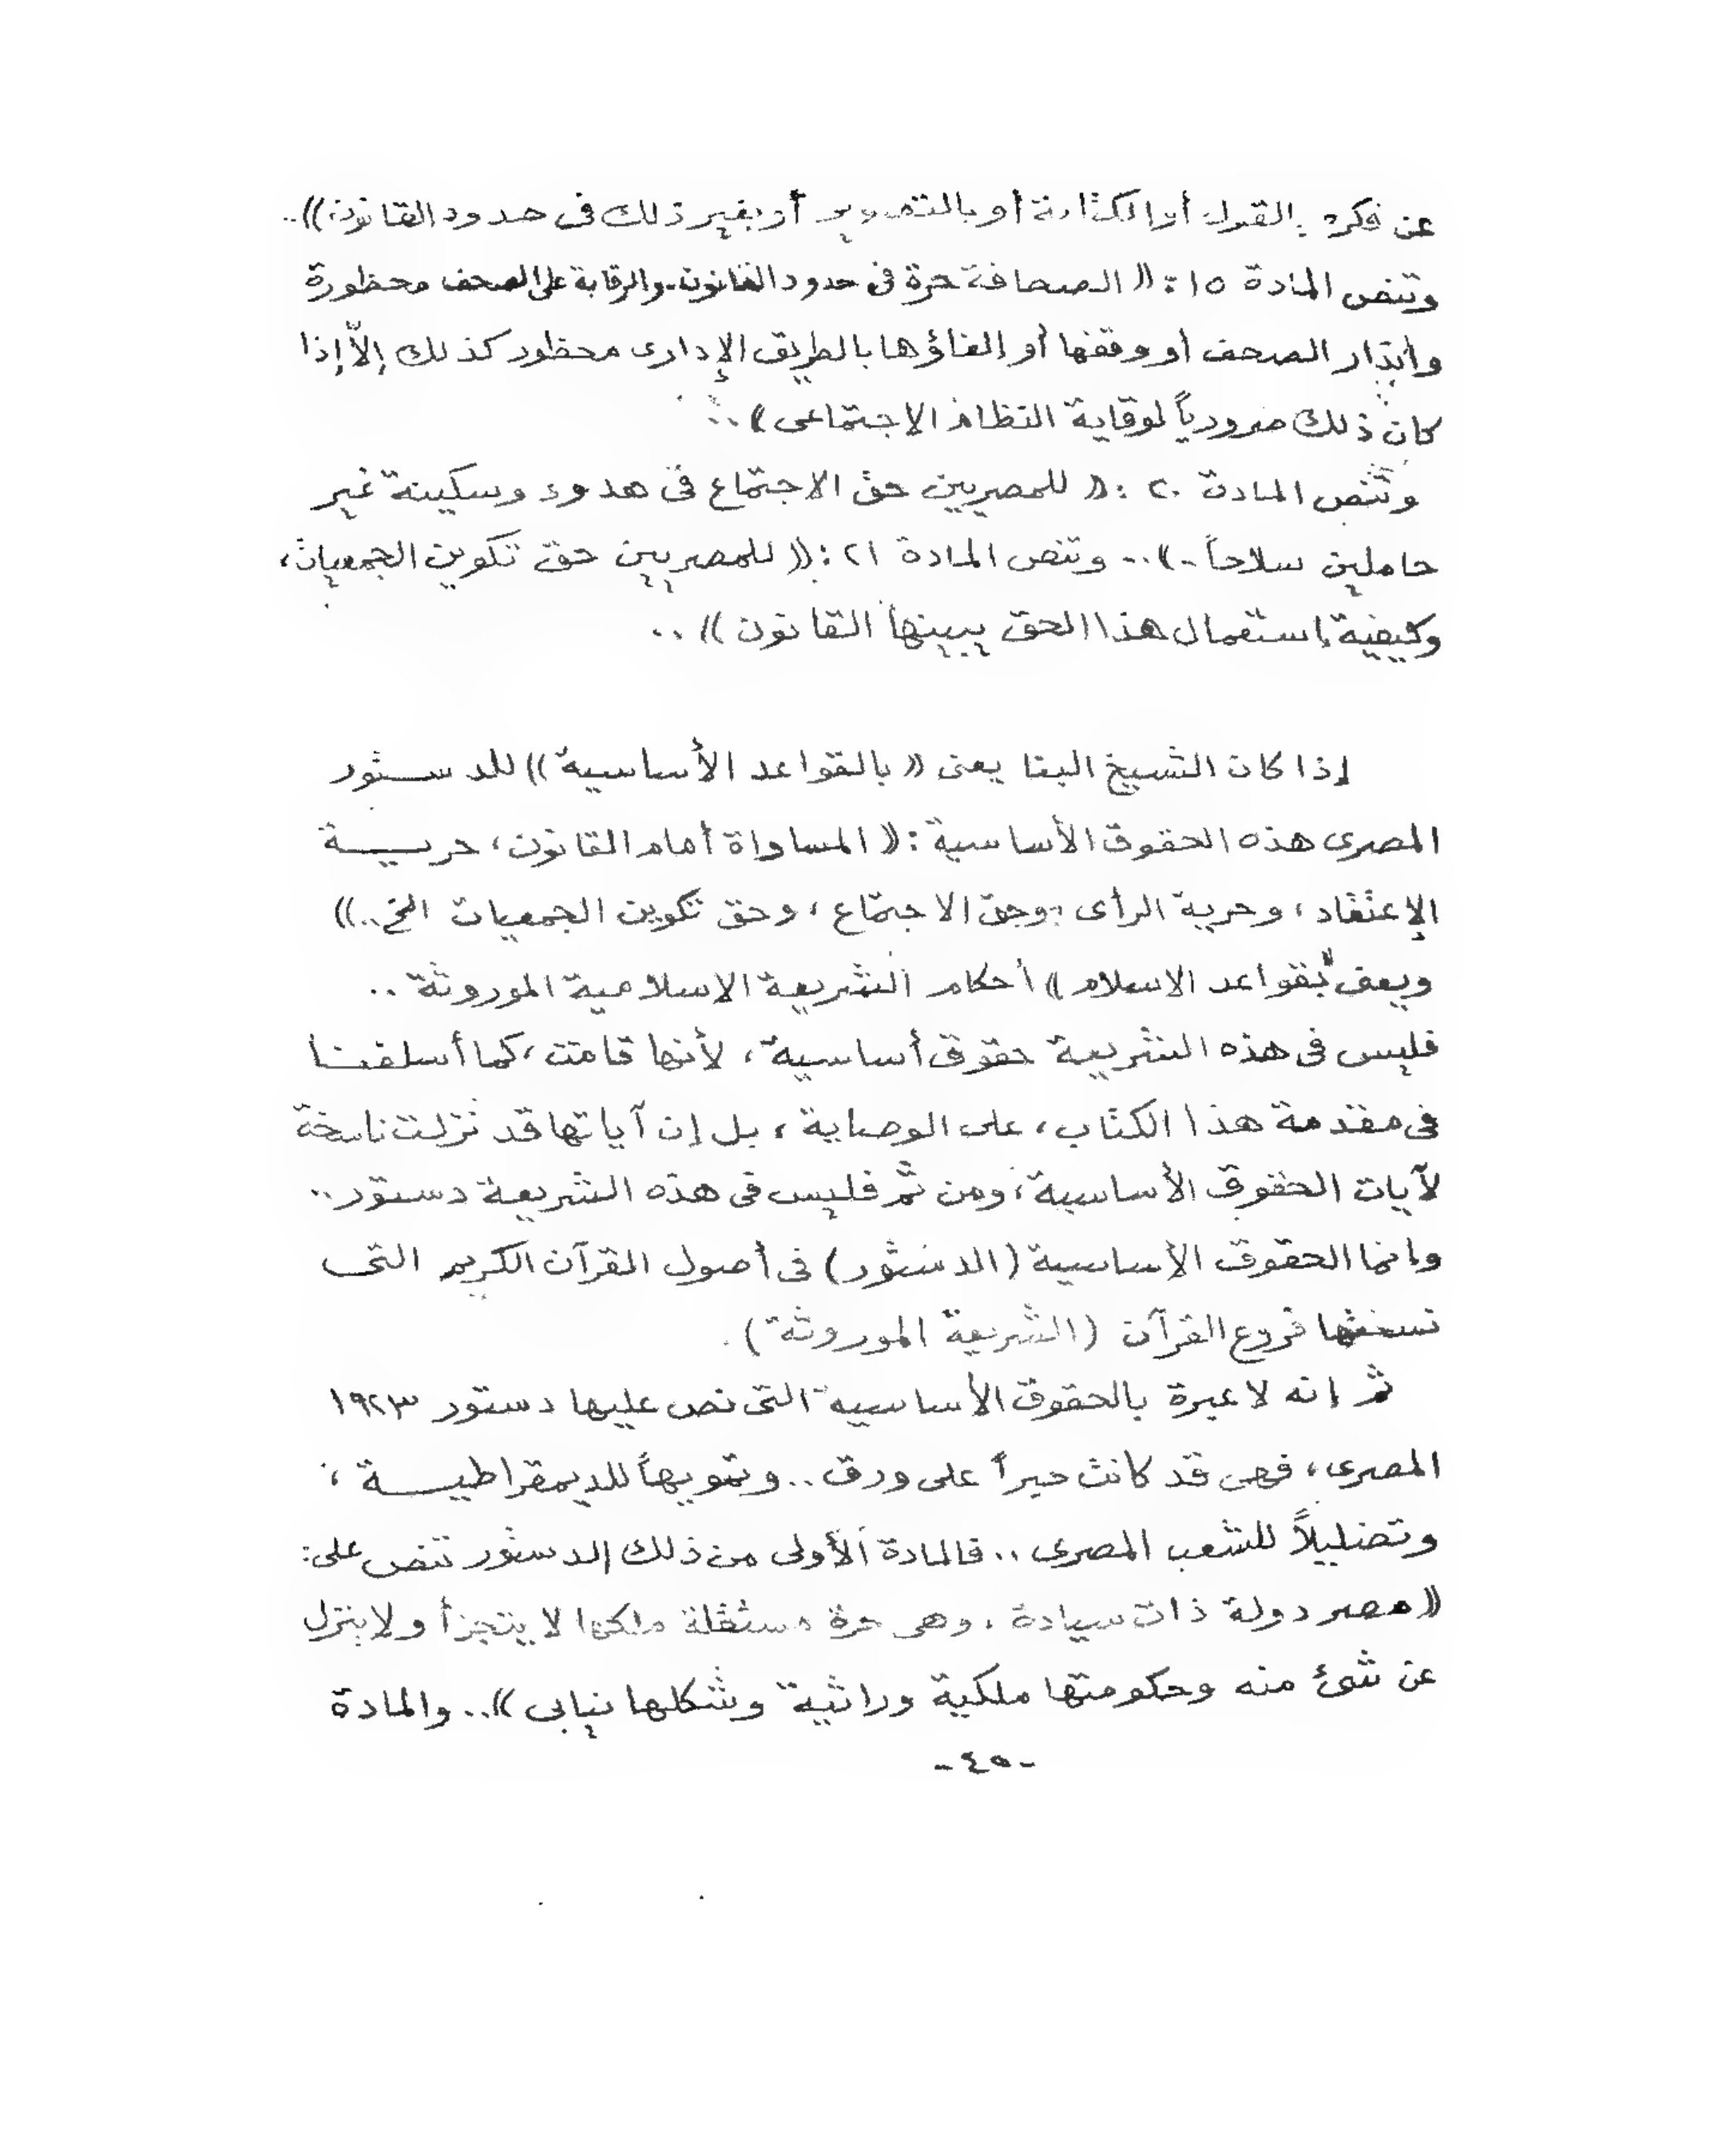 عن فكره بالقول أو الكتابة أو بالتصوير أو بغير ذلك فى حدود القانون))..
وتنص المادة ١٥ : (( الصحافة حرة فى حدود القانون والرقابة على الصحف محظورة
وإنذار الصحف أو وقفها أو إلغاؤها بالطريق الإدارى محظور كذلك إلاّ إذا
كان ذلك ضرورياً لوقاية النظام الاجتماعى )) ..
وتنص المادة ٢٠ : (( للمصريين حق الاجتماع فى هدوء وسكينة غير
حاملين سلاحاً .)).. وتنص المادة ٢١ : (( للمصريين حق تكوين الجمعيات،
وكيفية إستعمال هذا الحق يبينها القانون )) ..
إذا كان الشيخ البنا يعنى (( بالقواعد الأساسية )) للدستور
المصرى هذه الحقوق الأساسية : (( المساواة أمام القانون، حرية
الإعتقاد، وحرية الرأى، وحق الاجتماع، وحق تكوين الجمعيات الخ..))
ويعنى "بقواعد الاسلام )) أحكام الشريعة الاسلامية الموروثة ..
فليس فى هذه الشريعة حقوق أساسية، لأنها قامت، كما أسلفنا
فى مقدمة هذا الكتاب، على الوصاية، بل إن آياتها قد نزلت ناسخة
لآيات الحقوق الأساسية، ومن ثم فليس فى هذه الشريعة دستور..
وإنما الحقوق الأساسية (الدستور) فى أصول القرآن الكريم التى
نسختها فروع القرآن (الشريعة الموروثة) .
ثم إنه لا عبرة بالحقوق الأساسية التى نص عليها دستور ١٩٢٣
المصرى، فهى قد كانت حبراً على ورق .. وتمويهاً للديمقراطية،
وتضليلاً للشعب المصرى .. فالمادة الأولى من ذلك الدستور تنص على:
(( مصر دولة ذات سيادة، وهى حرة مستقلة ملكها لا يتجزأ ولا ينزل
عن شئ منه وحكومتها ملكية وراثية وشكلها نيابى )).. والمادة
-٤٥-